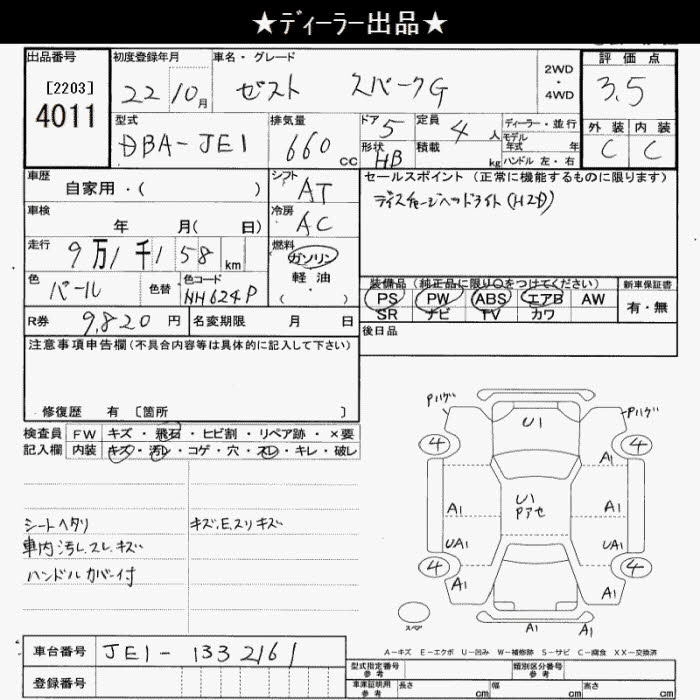 ★ディーラー出品★
出品番号 初度登録年月 車名・グレード 2WD・4WD 評価点
[2203] 4011 22 10月 ゼスト スパークG 3.5
型式 排気量 ドア 5 定員 4人 ディーラー・並行 外装 内装
DBA-JE1 660cc 形状 HB 積載 kg モデル年式 年 C C
ハンドル 左・右
車歴 シフト セールスポイント(正常に機能するものに限ります)
自家用・( ) AT ディスチャージヘッドライト(HID)
車検 冷房
年 月( 日) AC
走行 燃料
9万1千158km ガソリン
色 色替 色コード 軽油 装備品(純正品に限り○をつけてください) 新車保証書
パール NH624P ・( ) PS PW ABS エアB AW 有・無
SR ナビ TV カワ
R券 9,820円 名変期限 月 日 後日品
注意事項申告欄(不具合内容等は具体的に記入して下さい)
修復歴 有 [箇所 ]
検査員 FW キズ・飛石・ヒビ割・リペア跡・×要
記入欄 内装 キズ・汚レ・コゲ・穴・スレ・キレ・破レ
シートヘタリ キズ、E、スリキズ
車内汚レ、スレ、キズ
ハンドルカバー付
Pハゲ U1 Pハゲ
4 4
A1
A1 U1 A1
Pアセ
UA1 UA1
4 4
A1 A1
スペア A1 A1
A-キズ E-エクボ U-凹み W-補修跡 S-サビ C-腐食 XX-交換済
車台番号 JE1-1332161
型式指定番号 参考 類別区分番号 参考
登録番号 車庫証明用 参考 長さ cm 幅 cm 高さ cm